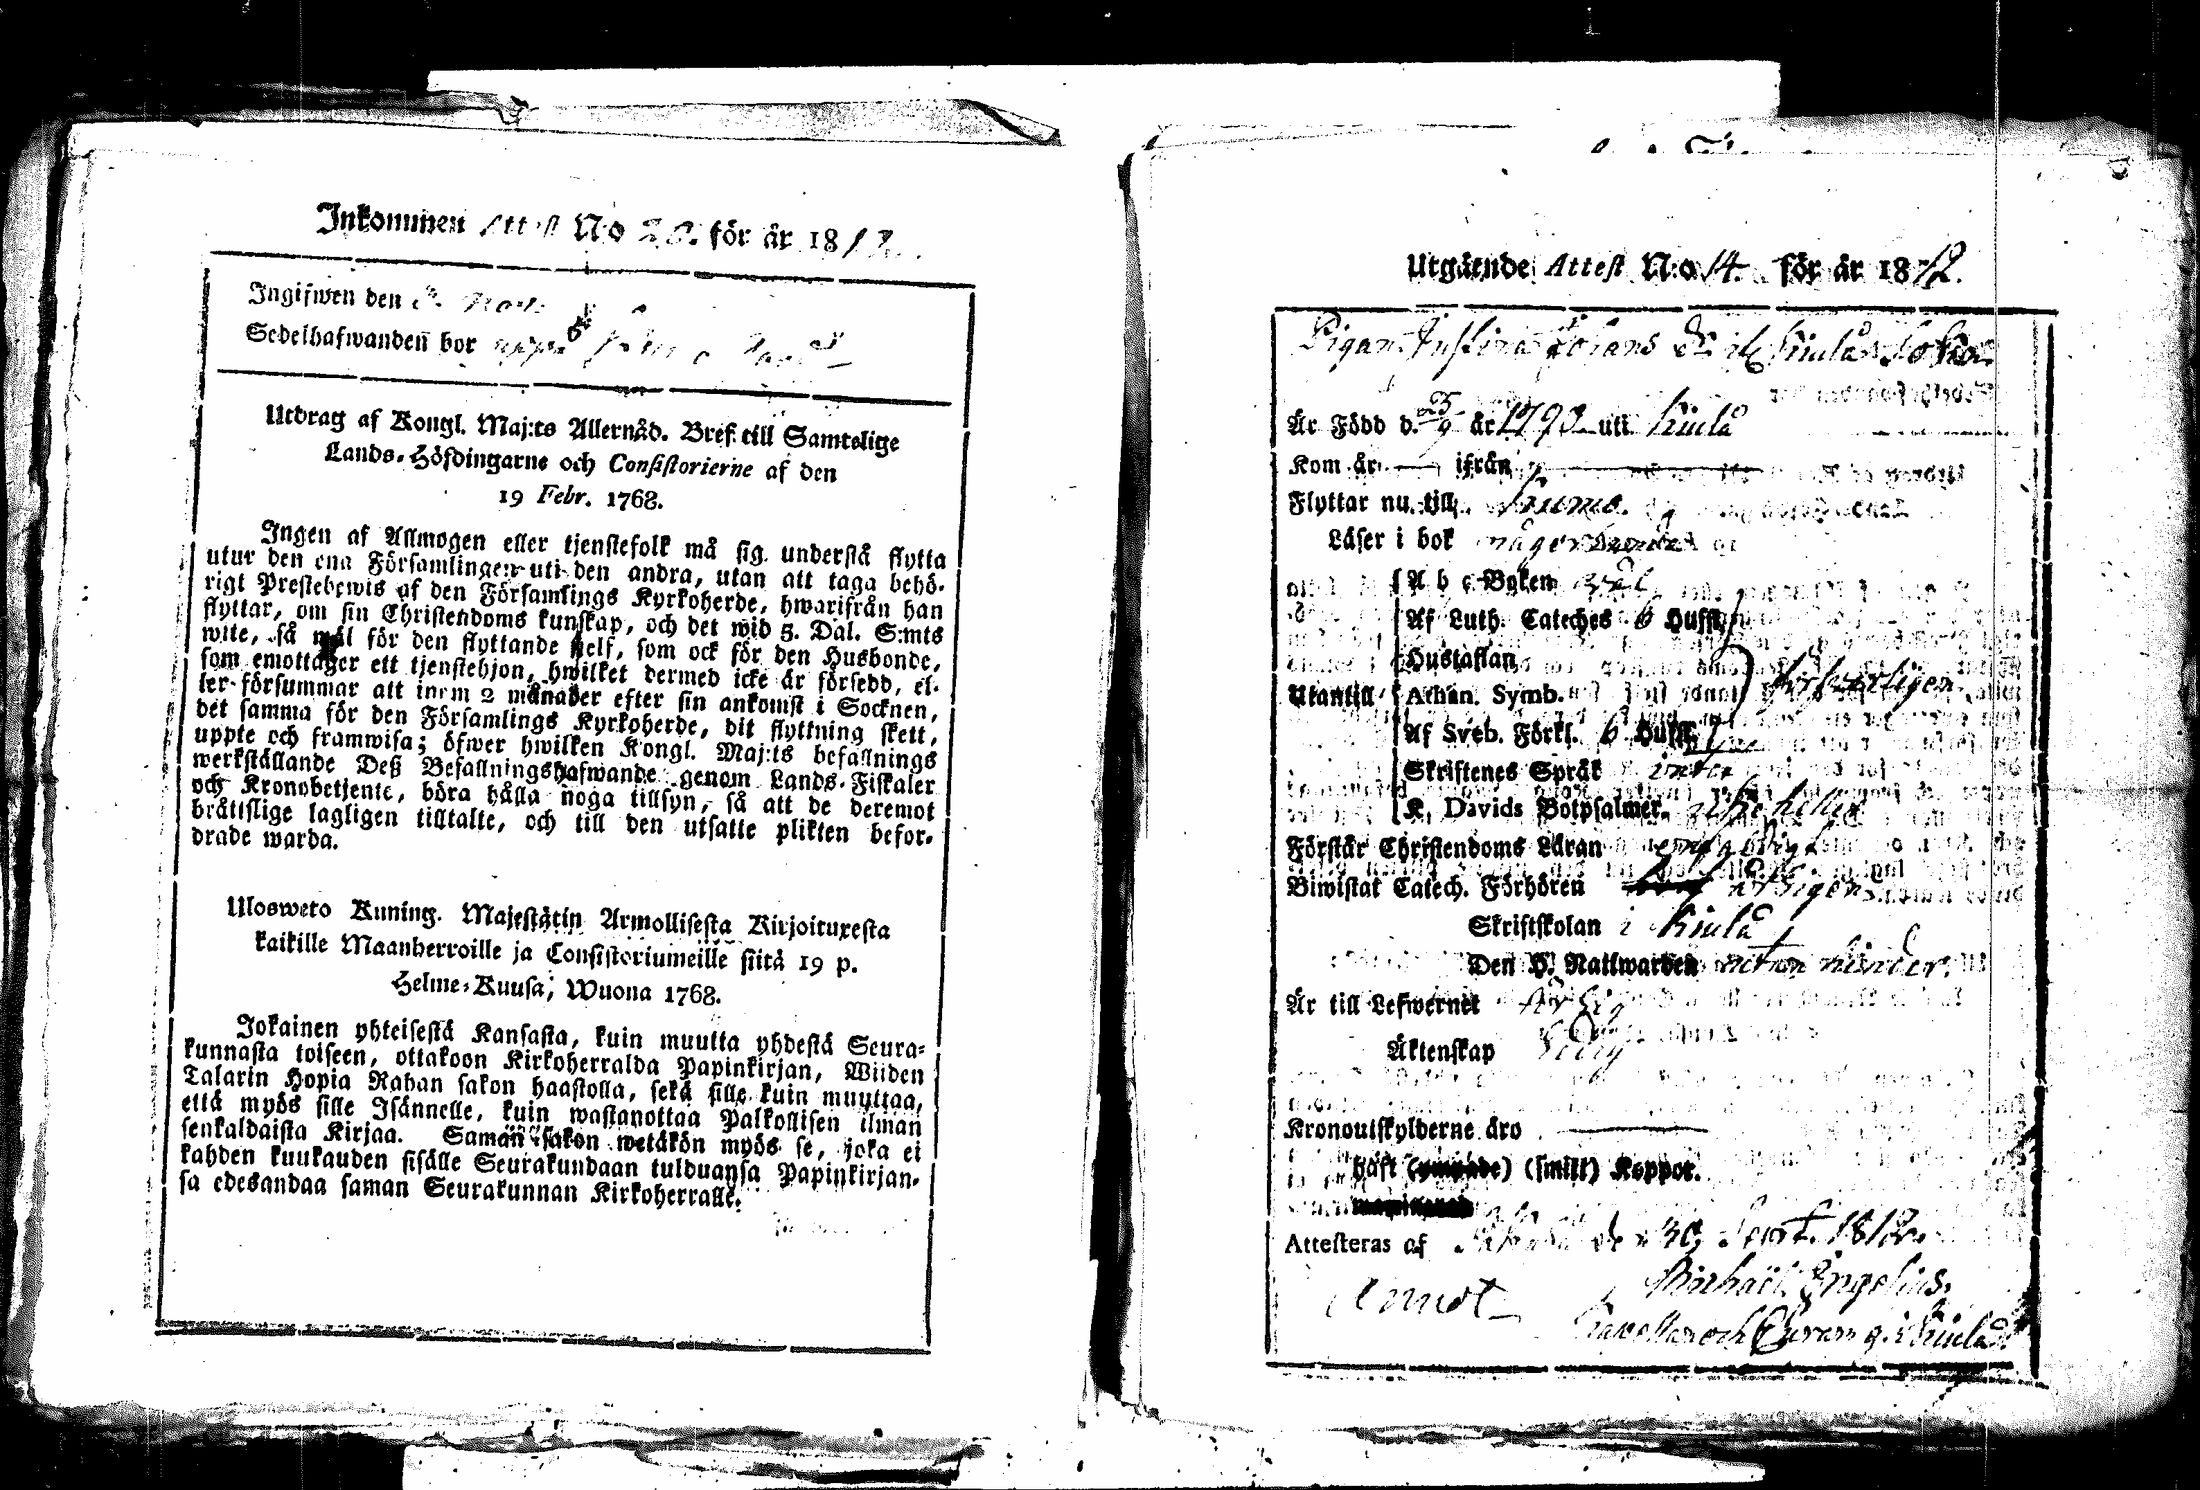 Inkommen Attest N:o 20. för år 1812.
Ingifwen den
Sedelhafwanden bor uppå
Utdrag af Kongl. Maj:ts Allernåd. Bref till Samtelige
Lands-Höfdingarne och Consistorierne af den
19 Febr. 1768.
Ingen af Allmogen eller tjenstefolk må sig understå flytta
utur den ena Församlingen uti den andra, utan att taga behö-
rigt Prestebewis af den Församlings Kyrkoherde, hwarifrån han
flyttar, om sin Christendoms kunskap, och det wid 5. Dal. S:mts
wite, så wäl för den flyttande sielf, som ock för den Husbonde,
som emottager ett tjenstehjon, hwilket dermed icke är försedd, el-
ler försummar att inom 2 månader efter sin ankomst i Socknen,
det samma för den Församlings Kyrkoherde, dit flyttning skett,
uppte och framwisa; öfwer hwilken Kongl. Maj:ts befallnings
werkställande Deß Befallningshafwande genom Lands-Fiskaler
och Kronobetjente, böra hålla noga tillsyn, så att de deremot
bråttslige lagligen tilltalte, och till den utsatte plikten befor-
drade warda.
Ulosweto Kuning. Majestätin Armollisesta Kirjoituxesta
kaikille Maanherroille ja Consistoriumeille siitä 19 p.
Helme-Kuusa, Wuona 1768.
Jokainen yhteisestä Kansasta, kuin muutta yhdestä Seura-
kunnasta toiseen, ottakoon Kirkoherralda Papinkirjan, Wiiden
Talarin Hopia Rahan sakon haastolla, sekä sille kuin muuttaa,
että myös sille Isännelle, kuin wastanottaa Palkollisen ilman
senkaldaista Kirjaa. Samän sakon wetäkön myös se, joka ei
kahden kuukauden sisälle Seurakundaan tulduansa Papinkirjan-
sa edesandaa saman Seurakunnan Kirkoherralle.
Utgående Attest N:o 14. för år 1812.
Pigan Justina Johans Dr. ifr. Kiula Sokn
Är Född d. 25/9 år 1793 uti Kiula
Kom år ifrån
Flyttar nu till Raumo.
Läser i bok någorlunda
A b c-Boken wäl
Af Luth. Cateches 6 Hufst.
Hustaflan
Utantill Athan. Symb. försvarligen
Af Sveb. Förkl. 6 Hufst.
Skriftenes Språk intet
K. Davids Botpsalmer. icke heller
Förstår Christendoms Läran
Biwistat Catech. Förhören årligen
Skriftskolan i Kiula
Den H. Nattwarden utan hinder.
Är till Lefwernet ärlig
Äktenskap ledig
Kronoutskylderne äro
haft (ympade) (smitt) Koppor.
Attesteras af d. 30 Sept. 1812.
Michaël Engelius.
Capellan och i Kiula.